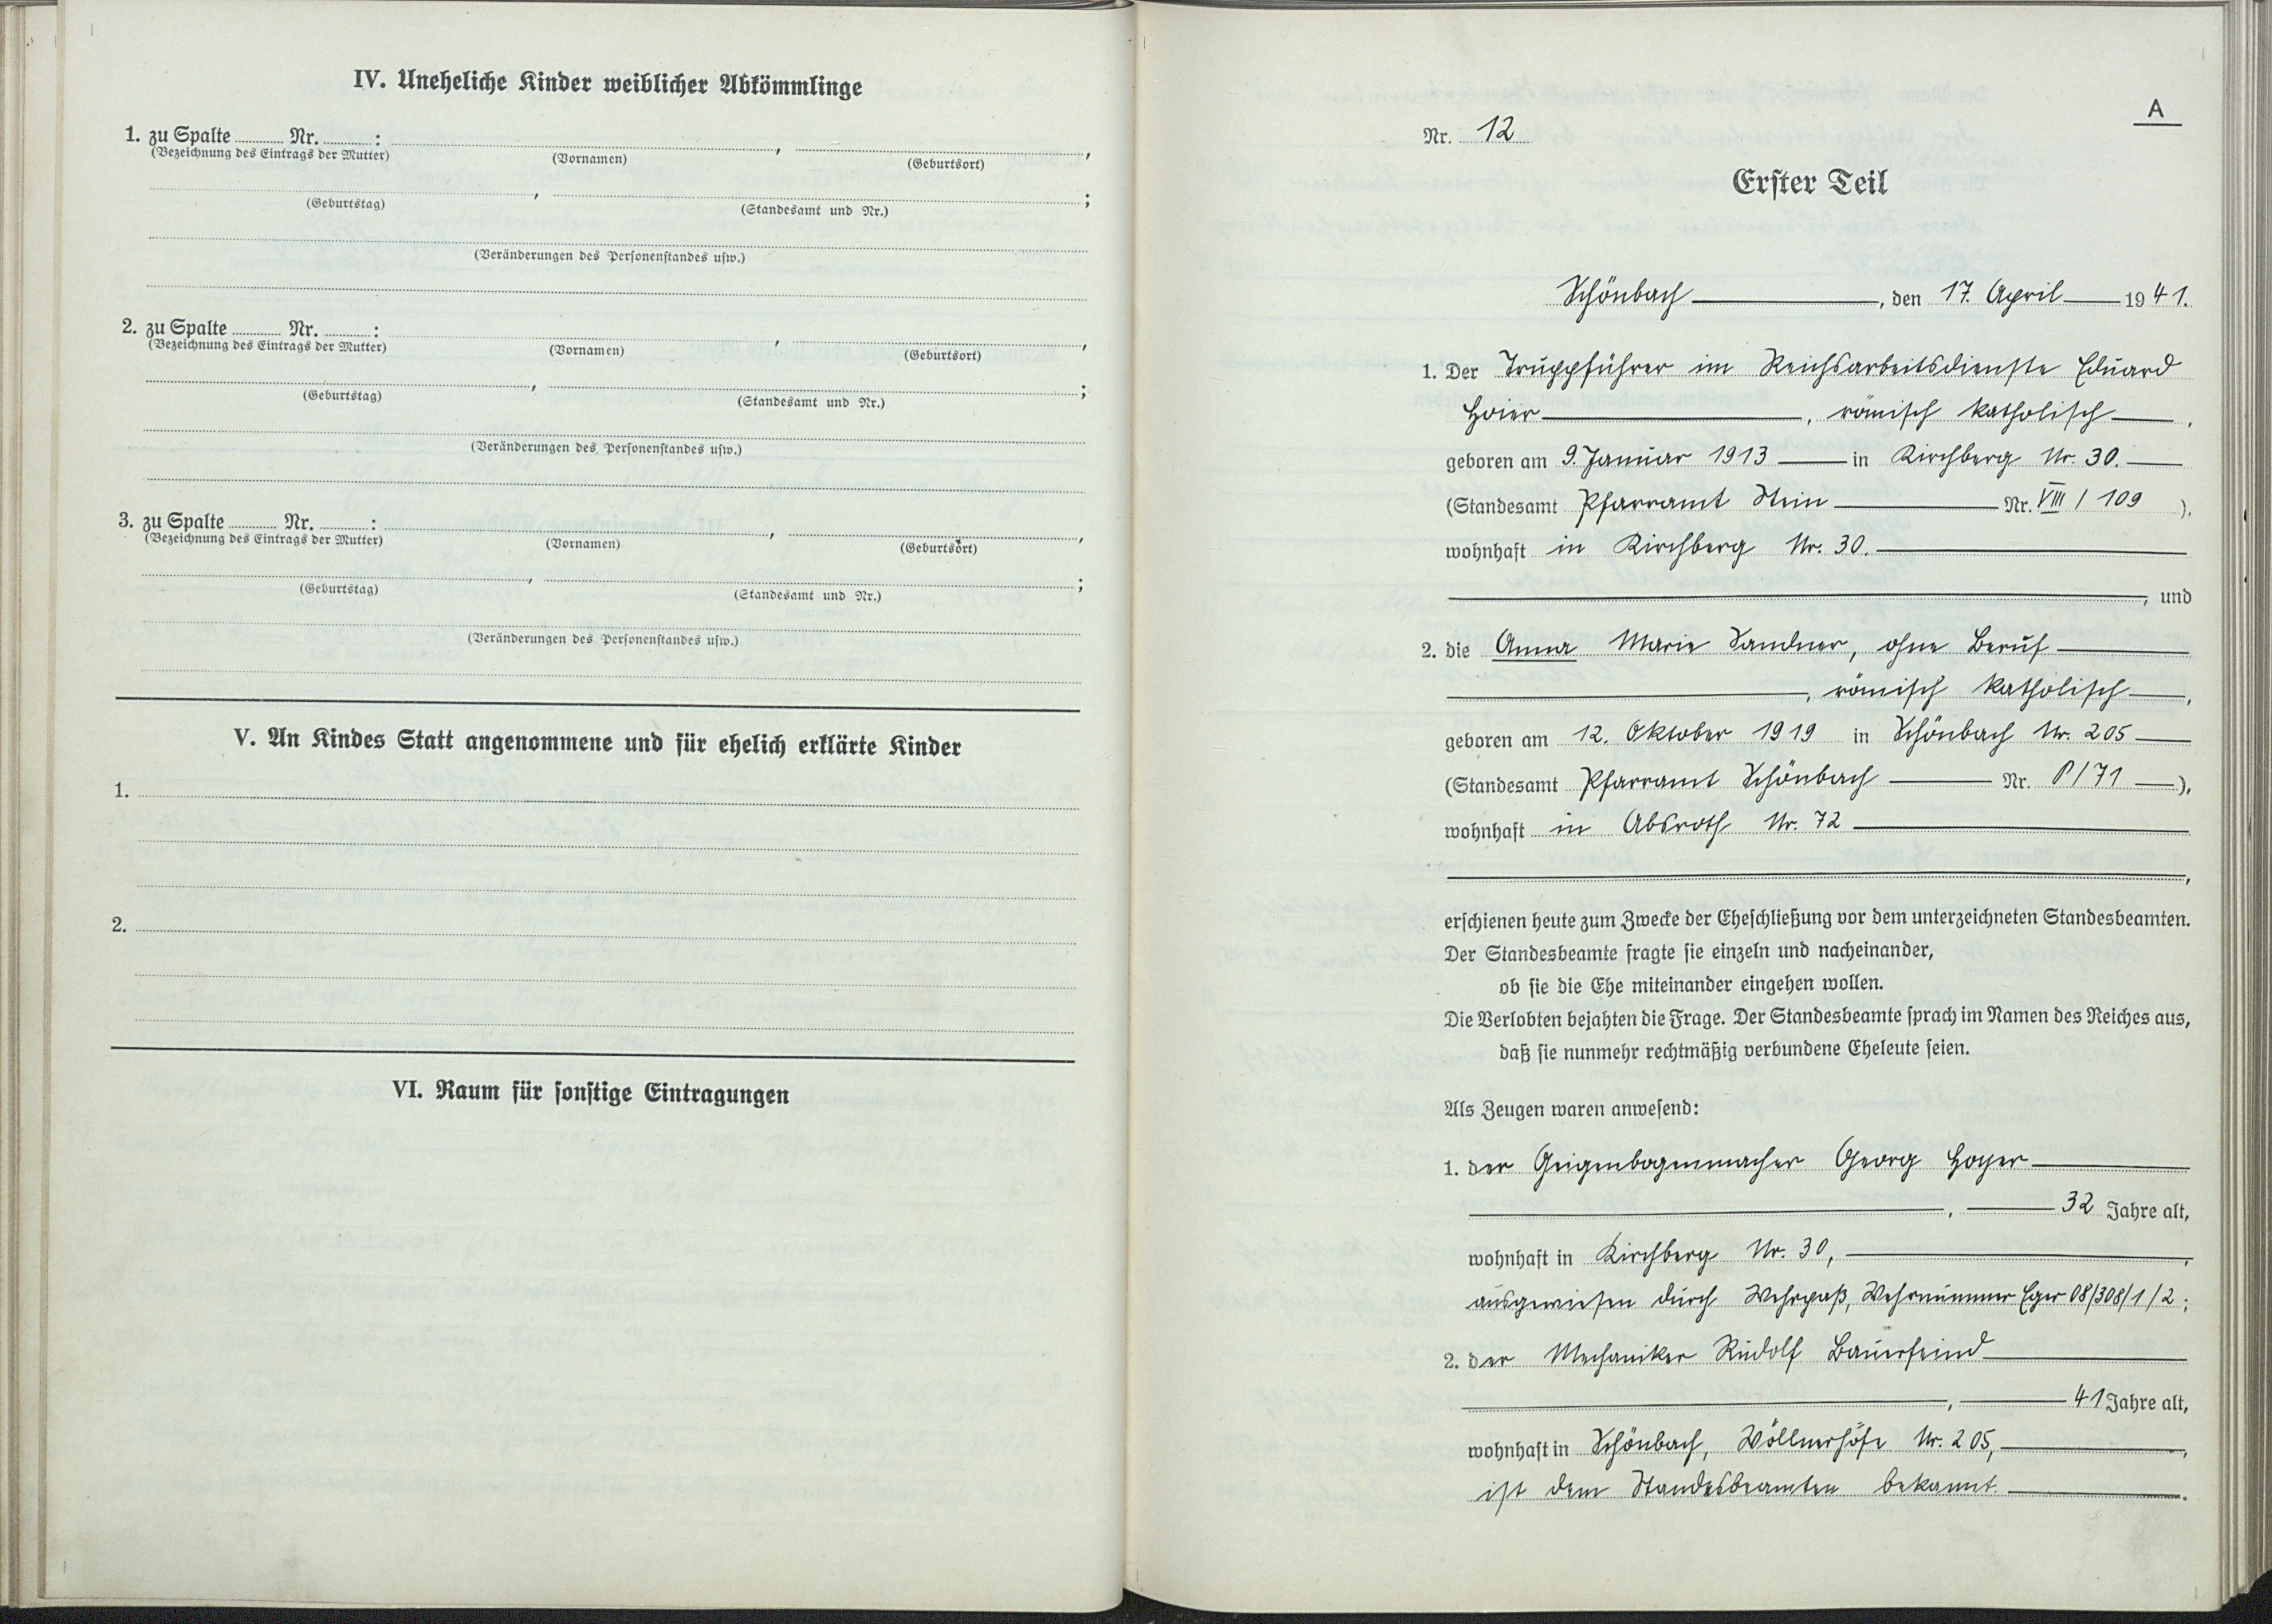 IV. Uneheliche Kinder weiblicher Abkömmlinge
1. zu Spalte ........ Nr. ........ :
(Bezeichnung des Eintrags der Mutter) (Vornamen) , (Geburtsort) ,
(Geburtstag) , (Standesamt und Nr.) ;
(Veränderungen des Personenstandes usw.)
2. zu Spalte ........ Nr. ........ :
(Bezeichnung des Eintrags der Mutter) (Vornamen) , (Geburtsort) ,
(Geburtstag) , (Standesamt und Nr.) ;
(Veränderungen des Personenstandes usw.)
3. zu Spalte ........ Nr. ........ :
(Bezeichnung des Eintrags der Mutter) (Vornamen) , (Geburtsort) ,
(Geburtstag) , (Standesamt und Nr.) ;
(Veränderungen des Personenstandes usw.)
V. An Kindes Statt angenommene und für ehelich erklärte Kinder
1.
2.
VI. Raum für sonstige Eintragungen
A
Nr. 12
Erster Teil
Schönbach, den 17. April 1941.
1. Der Truppführer im Reichsarbeitsdienste Eduard
Hoier, römisch katholisch,
geboren am 9. Januar 1913 in Kirchberg Nr. 30.
(Standesamt Pfarramt Stein Nr. VIII / 109 ).
wohnhaft in Kirchberg Nr. 30.
, und
2. die Anna Marie Sandner, ohne Beruf
, römisch katholisch,
geboren am 12. Oktober 1919 in Schönbach Nr. 205
(Standesamt Pfarramt Schönbach Nr. P/71 ),
wohnhaft in Absroth Nr. 72
,
erschienen heute zum Zwecke der Eheschließung vor dem unterzeichneten Standesbeamten.
Der Standesbeamte fragte sie einzeln und nacheinander,
ob sie die Ehe miteinander eingehen wollen.
Die Verlobten bejahten die Frage. Der Standesbeamte sprach im Namen des Reiches aus,
daß sie nunmehr rechtmäßig verbundene Eheleute seien.
Als Zeugen waren anwesend:
1. der Geigenbogenmacher Georg Hoyer
, 32 Jahre alt,
wohnhaft in Kirchberg Nr. 30,
ausgewiesen durch Wehrpaß, Wehrnummer Eger 08/308/1/2;
2. der Mechaniker Rudolf Bauerfeind
, 41 Jahre alt,
wohnhaft in Schönbach, Wöllnerhöfe Nr. 205,
ist dem Standesbeamten bekannt.